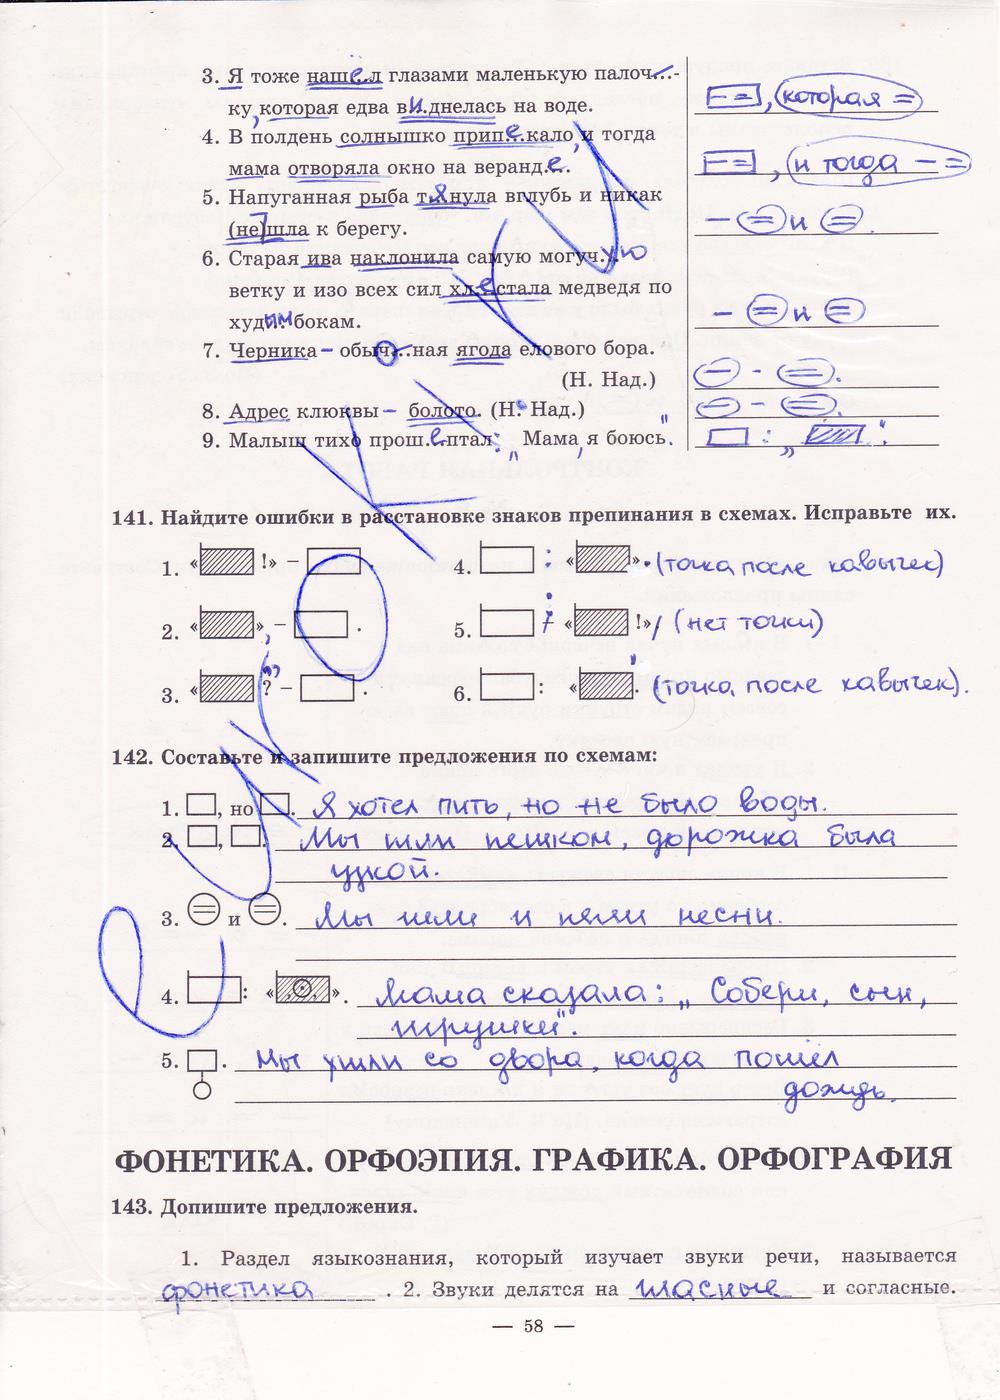 3. Я тоже нашел глазами маленькую палоч-
ку, которая едва виднелась на воде.
, которая
4. В полдень солнышко припекало, и тогда
мама отворяла окно на веранде.
, и тогда
5. Напуганная рыба тянула вглубь и никак
(не)шла к берегу.
и .
6. Старая ива наклонила самую могучую
ветку и изо всех сил хлестала медведя по
худым бокам.
и
7. Черника – обыч...ная ягода елового бора.
(Н. Над.)
- .
8. Адрес клюквы – болото. (Н. Над.)
- .
9. Малыш тихо прошептал: „ Мама, я боюсь".
: „ ".
141. Найдите ошибки в расстановке знаков препинания в схемах. Исправьте их.
1. « !» – .
4. : « ». (точка после кавычек)
2. «», – .
5. : « !» (нет точки)
3. « ?" – .
6. : « . " (точка после кавычек).
142. Составьте и запишите предложения по схемам:
1. , но . Я хотел пить, но не было воды.
2. , . Мы шли пешком, дорожка была
узкой.
3. и . Мы шли и пели песни.
4. : « , , ». Мама сказала: „ Собери, сын,
игрушки".
5. . Мы ушли со двора, когда пошёл
дождь.
ФОНЕТИКА. ОРФОЭПИЯ. ГРАФИКА. ОРФОГРАФИЯ
143. Допишите предложения.
1. Раздел языкознания, который изучает звуки речи, называется
фонетика . 2. Звуки делятся на гласные и согласные.
— 58 —